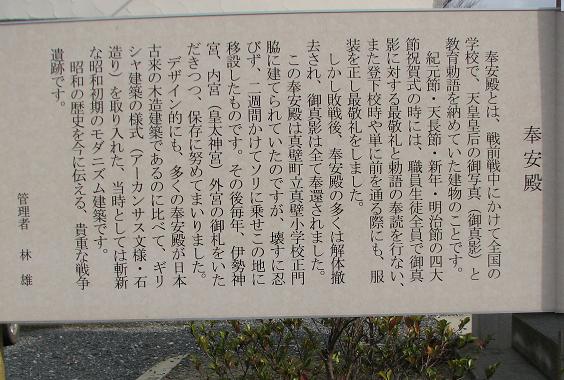 奉安殿
奉安殿とは、戦前戦中にかけて全国の
学校で、天皇皇后の御写真（御真影）と
教育勅語を納めていた建物のことです。
紀元節・天長節・新年・明治節の四大
節祝賀式の時には、職員生徒全員で御真
影に対する最敬礼と勅語の奉読を行ない、
また登下校時や単に前を通る際にも、服
装を正し最敬礼をしました。
しかし敗戦後、奉安殿の多くは解体撤
去され、御真影は全て奉還されました。
この奉安殿は真壁町立真壁小学校正門
脇に建てられていたのですが、壊すに忍
びず、二週間かけてソリに乗せこの地に
移設したものです。その後毎年、伊勢神
宮、内宮（皇太神宮）外宮の御札をいた
だきつつ、保存に努めてまいりました。
デザイン的にも、多くの奉安殿が日本
古来の木造建築であるのに比べて、ギリ
シャ建築の様式（アーカンサス文様・石
造り）を取り入れた、当時としては斬新
な昭和初期のモダニズム建築です。
昭和の歴史を今に伝える、貴重な戦争
遺跡です。
管理者　林　雄